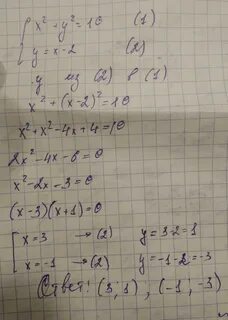 x² + y² = 10 (1)
y = x - 2 (2)
y из (2) в (1)
x² + (x-2)² = 10
x² + x² - 4x + 4 = 10
2x² - 4x - 6 = 0
x² - 2x - 3 = 0
(x-3)(x+1) = 0
x = 3 → (2) y = 3-2 = 1
x = -1 → (2) y = -1-2 = -3
Ответ: (3, 1), (-1, -3)